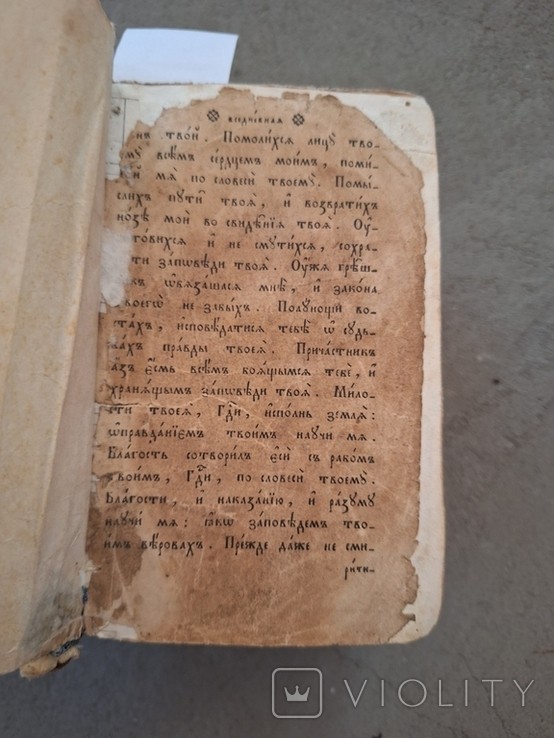 вседневная
нъ твой. Помолихся лицу тво-
му всѣмъ се́рдцемъ мои́мъ, поми-
й мѧ̀ по словесѝ твоемꙋ̀. Помы-
слихъ пꙋти̑ твоѧ̑, и҆ возврати́хъ
но́зѣ моѝ во свидѣ́нїѧ твоѧ̑. Оу҆-
то́вихсѧ и҆ не смꙋти́хсѧ, сохра-
ти за́пѡвѣди твоѧ̑. Оу҆́жѧ грѣ́ш-
къ ѡ҆бѧза́шасѧ мнѣ̀, и҆ зако́на
твоегѡ̀ не забы́хъ. Полꙋ́нощи во-
ста́хъ, и҆сповѣ́датисѧ тебѣ̀ ѡ҆ сꙋдь-
ба́хъ пра́вды твоеѧ̀. Прича́стникъ
а҆́зъ є҆́смь всѣ̑мъ боѧ́щымсѧ тебѐ, и҆
хранѧ́щымъ за́пѡвѣди твоѧ̑. Ми́ло-
сти твоеѧ̀, Гдⷭ҇и, и҆спо́лнь землѧ̀:
ѡ҆правда́нїємъ твои̑мъ наꙋчи́ мѧ.
Бла́гость сотвори́лъ є҆сѝ съ рабо́мъ
твои́мъ, Гдⷭ҇и, по словесѝ твоемꙋ̀.
Бла́гости, и҆ наказа́нїю, и҆ ра́зꙋмꙋ
наꙋчи́ мѧ: ꙗ҆́кѡ за́повѣдемъ тво-
и̑мъ вѣ́ровахъ. Пре́жде да́же не сми-
рити-
VIOLITY